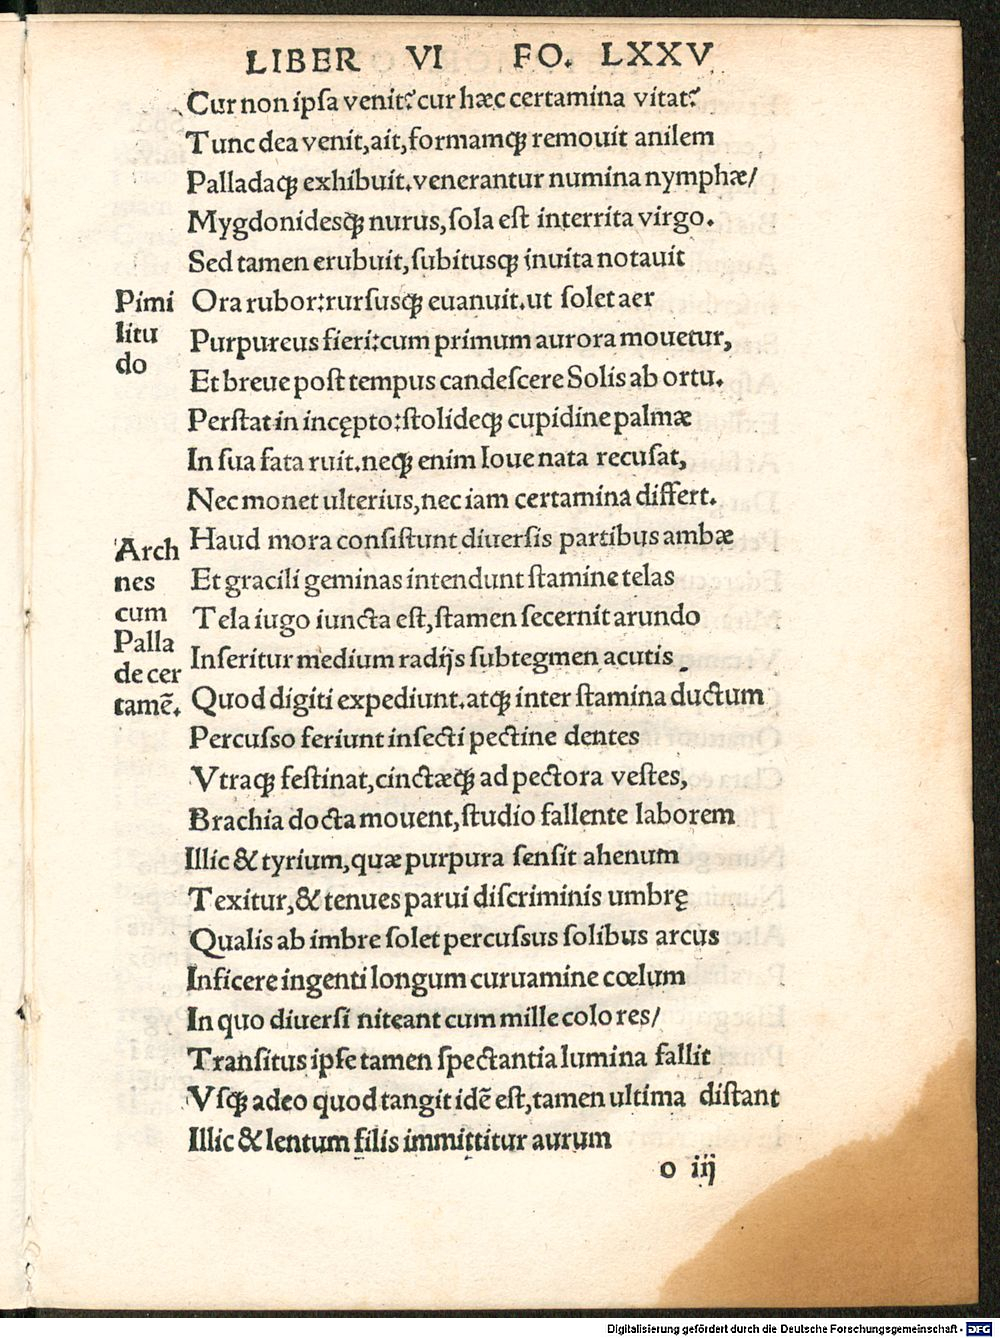 LIBER VI FO. LXXV
Cur non ipſa venit? cur hæc certamina vitat?
Tunc dea venit, ait, formamqꝫ remouit anilem
Palladaqꝫ exhibuit. venerantur numina nymphæ/
Mygdonidesqꝫ nurus, ſola eſt interrita virgo.
Sed tamen erubuit, ſubitusqꝫ inuita notauit
Pimi
litu
do
Ora rubor: rurſusqꝫ euanuit. ut ſolet aer
Purpureus fieri: cum primum aurora mouetur,
Et breue poſt tempus candeſcere Solis ab ortu.
Perſtat in incępto: ſtolideqꝫ cupidine palmæ
In ſua fata ruit. neqꝫ enim Ioue nata recuſat,
Nec monet ulterius, nec iam certamina differt.
Arch
nes
cum
Palla
de cer
tamē.
Haud mora conſiſtunt diuerſis partibus ambæ
Et gracili geminas intendunt ſtamine telas
Tela iugo iuncta eſt, ſtamen ſecernit arundo
Inſeritur medium radijs ſubtegmen acutis
Quod digiti expediunt. atqꝫ inter ſtamina ductum
Percuſſo feriunt inſecti pectine dentes
Vtraqꝫ feſtinat, cinctæqꝫ ad pectora veſtes,
Brachia docta mouent, ſtudio fallente laborem
Illic & tyrium, quæ purpura ſenſit ahenum
Texitur, & tenues parui diſcriminis umbrę
Qualis ab imbre ſolet percuſſus ſolibus arcus
Inficere ingenti longum curuamine cœlum
In quo diuerſi niteant cum mille colores/
Tranſitus ipſe tamen ſpectantia lumina fallit
Vſqꝫ adeo quod tangit idē eſt, tamen ultima diſtant
Illic & lentum filis immittitur aurum
o iij
Digitalisierung gefördert durch die Deutsche Forschungsgemeinschaft - DFG